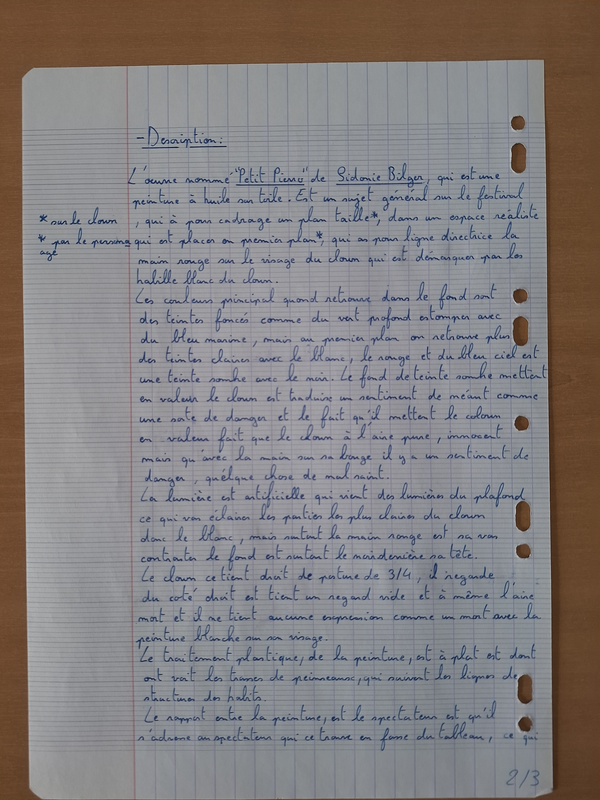 - Description:
L'œuvre nommé "Petit Pierro" de Sidonie Bilger, qui est une
peinture à huile sur toile. Est un sujet général sur le festival
* sur le clown , qui à pour cadrage un plan taille*, dans un espace réaliste
* par le person qui est placer en premier plan*, qui as pour ligne directrice la
age
main rouge sur le visage du clown qui est démarquer par les
habille blanc du clown.
Les couleurs principal quand retrouve dans le fond sont
des teintes foncés comme du vert profond estomper avec
du bleu marine, mais au premier plan on retrouve plus
des teintes claires avec le blanc, le rouge et du bleu ciel est
une teinte sombre avec le noir. Le fond de teinte sombre mettent
en valeur le clown est traduire un sentiment de méant comme
une sorte de danger et le fait qu'il mettent le coloun
en valeur fait que le clown à l'aire pure, innocent
mais qu'avec la main sur sa bouge il y a un sentiment de
danger, quélque chose de mal saint.
La lumière est artificielle qui vient des lumières du plafond
ce qui vas éclairer les parties les plus claires du clown
donc le blanc, mais surtout la main rouge est sa vas
contraster le fond est surtout le noir derrière sa tête.
Le clown ce tient droit de posture de 3/4, il regarde
du coté droit est tient un regard vide et à même l'aire
mort et il ne tient aucune expression comme un mort avec la
peinture blanche sur son visage.
Le traitement plastique, de la peinture, est à plat est dont
ont voit les traces de peinneaux, qui suivent les lignes de
structures des habits.
Le rapport entre la peinture, est le spectateur est qu'il
s'adresse au spectateur qui ce trouve en fasse du tableau, ce qui
2/3